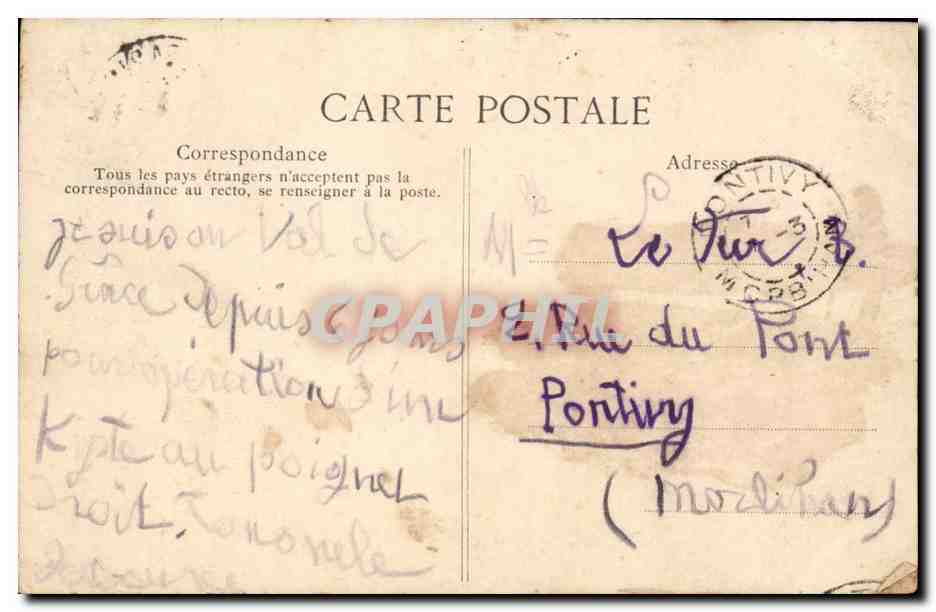 CARTE POSTALE
Correspondance
Tous les pays étrangers n'acceptent pas la
correspondance au recto, se renseigner à la poste.
je suis au Val de
Grâce depuis 6 jours
pour opération d'un
Kyste au poignet
droit.
Adresse
PONTIVY
MORBIHAN
Mlle Le Tur B.
2, Rue du Pont
Pontivy
(Morbihan)
CPAPHIL